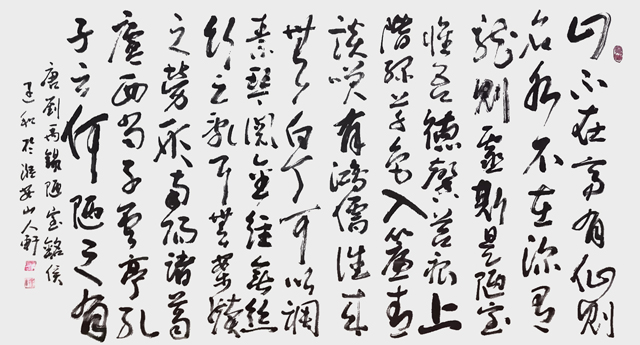 山不在高有仙則
名水不在深有
龍則靈斯是陋室
惟吾德馨苔痕上
階綠草色入簾青
談笑有鴻儒往來
無白丁可以調
素琴閱金經無絲
竹之亂耳無案牘
之勞形南陽諸葛
廬西蜀子雲亭孔
子云何陋之有
唐劉禹錫陋室銘侯
和於山人軒